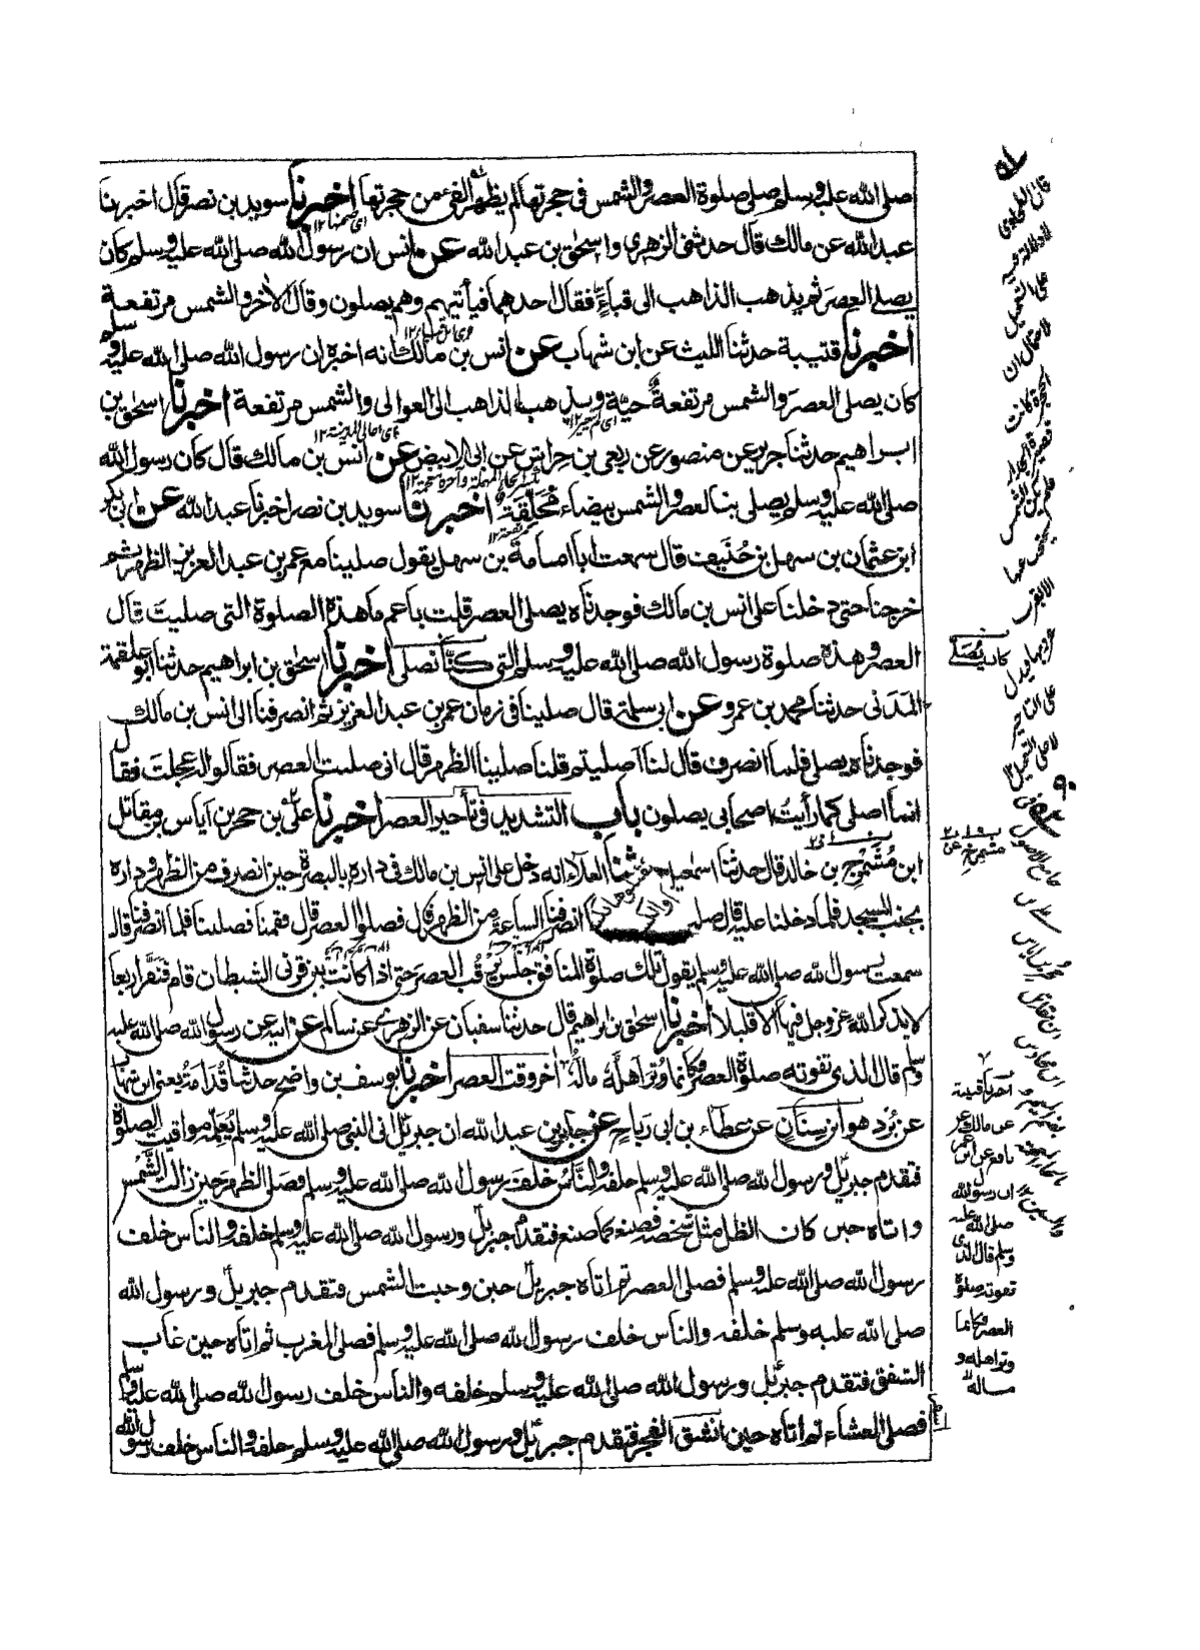 صلى الله عليه وسلم صلى صلوة العصر والشمس فى حجرتها لم يظهر الفئ من حجرتها اخبرنا سويد بن نصر قال اخبرنا
عبد الله عن مالك قال حدثنى الزهرى واسحق بن عبد الله عن انس ان رسول الله صلى الله عليه وسلم كان
يصلى العصر ثم يذهب الذاهب الى قباء فقال احدهما فيأتيهم وهم يصلون وقال الآخر والشمس مرتفعة
اخبرنا قتيبة حدثنا الليث عن ابن شهاب عن انس بن مالك انه اخبره ان رسول الله صلى الله عليه وسلم
كان يصلى العصر والشمس مرتفعة حيّة ويذهب الذاهب الى العوالى والشمس مرتفعة اخبرنا اسحق بن
ابراهيم حدثنا جرير عن منصور عن ربعى بن حراش عن ابى الابيض عن انس بن مالك قال كان رسول الله
صلى الله عليه وسلم يصلى بنا العصر والشمس بيضاء مُحَلِّقَة اخبرنا سويد بن نصر اخبرنا عبد الله عن ابى بكر
ابن عثمان بن سهل بن حُنَيف قال سمعت ابا امامة بن سهل يقول صلينا مع عمر بن عبد العزيز الظهر ثم
خرجنا حتى دخلنا على انس بن مالك فوجدناه يصلى العصر قلت يا عم ما هذه الصلوة التى صليت قال
العصر وهذه صلوة رسول الله صلى الله عليه وسلم التى كنّا نصلى اخبرنا اسحق بن ابراهيم حدثنا ابو علقمة
المَدَنى حدثنا محمد بن عمرو عن ابى سلمة قال صلينا فى زمان عمر بن عبد العزيز ثم انصرفنا الى انس بن مالك
فوجدناه يصلى فلما انصرف قال لنا اصليتم قلنا صلينا الظهر قال انى صليت العصر فقالوا له عجلت فقال
انما اصلى كما رأيتُ اصحابى يصلون باب التشديد فى تأخير العصر اخبرنا علىّ بن حجر بن اياس بن مقاتل
ابن مُشَمْرِج بن خالد قال حدثنا اسمعيل حدثنا العلاء انه دخل على انس بن مالك فى داره بالبصرة حين انصرف من الظهر وداره
بجنب المسجد فلما دخلنا عليه قال اصليتم انصرفنا الساعة من الظهر قال فصلوا العصر قال فقمنا فصلينا فلما انصرفنا قال
سمعت رسول الله صلى الله عليه وسلم يقول تلك صلوة المنافق جلس يرقُب العصر حتى اذا كانت بين قرنى الشيطان قام فنقر اربعا
لا يذكر الله عز وجل فيها الا قليلا اخبرنا اسحق بن ابراهيم قال حدثنا سفيان عن الزهرى عن سالم عن ابيه عن رسول الله صلى الله عليه
وسلم قال الذى تفوته صلوة العصر فكانما وُتر اهله وماله آخر وقت العصر اخبرنا يوسف بن واضح حدثنا قُدَامة يعنى ابن شهاب
عن بُرد هو ابن سِنَان عن عطاء بن ابى رباح عن جابر بن عبد الله ان جبريل اتى النبى صلى الله عليه وسلم يُعَلِّمه مواقيت الصلوة
فتقدم جبريل ورسول الله صلى الله عليه وسلم خلفه والناس خلف رسول الله صلى الله عليه وسلم فصلى الظهر حين زالت الشمس
واتاه حين كان الظل مثل شخصه فصنع كما صنع فتقدم جبريل ورسول الله صلى الله عليه وسلم خلفه والناس خلف
رسول الله صلى الله عليه وسلم فصلى العصر ثم اتاه جبريل حين وجبت الشمس فتقدم جبريل ورسول الله
صلى الله عليه وسلم خلفه والناس خلف رسول الله صلى الله عليه وسلم فصلى المغرب ثم اتاه حين غاب
الشفق فتقدم جبريل ورسول الله صلى الله عليه وسلم خلفه والناس خلف رسول الله صلى الله عليه وسلم
فصلى العشاء ثم اتاه حين انشق الفجر فتقدم جبريل ورسول الله صلى الله عليه وسلم خلفه والناس خلف رسول الله
كان يصلى
اخبرنا قتيبة
عن مالك عن
نافع عن ابن عمر
ان رسول الله
صلى الله عليه
وسلم قال الذى
تفوته صلوة
العصر فكانما
وتر اهله و
ماله